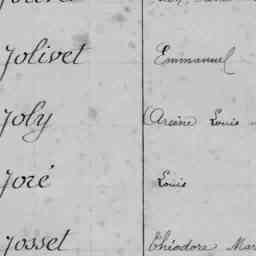 Jolivet Emmanuel
Joly Arsène Louis
Joré Louis
Josset Théodore Mar